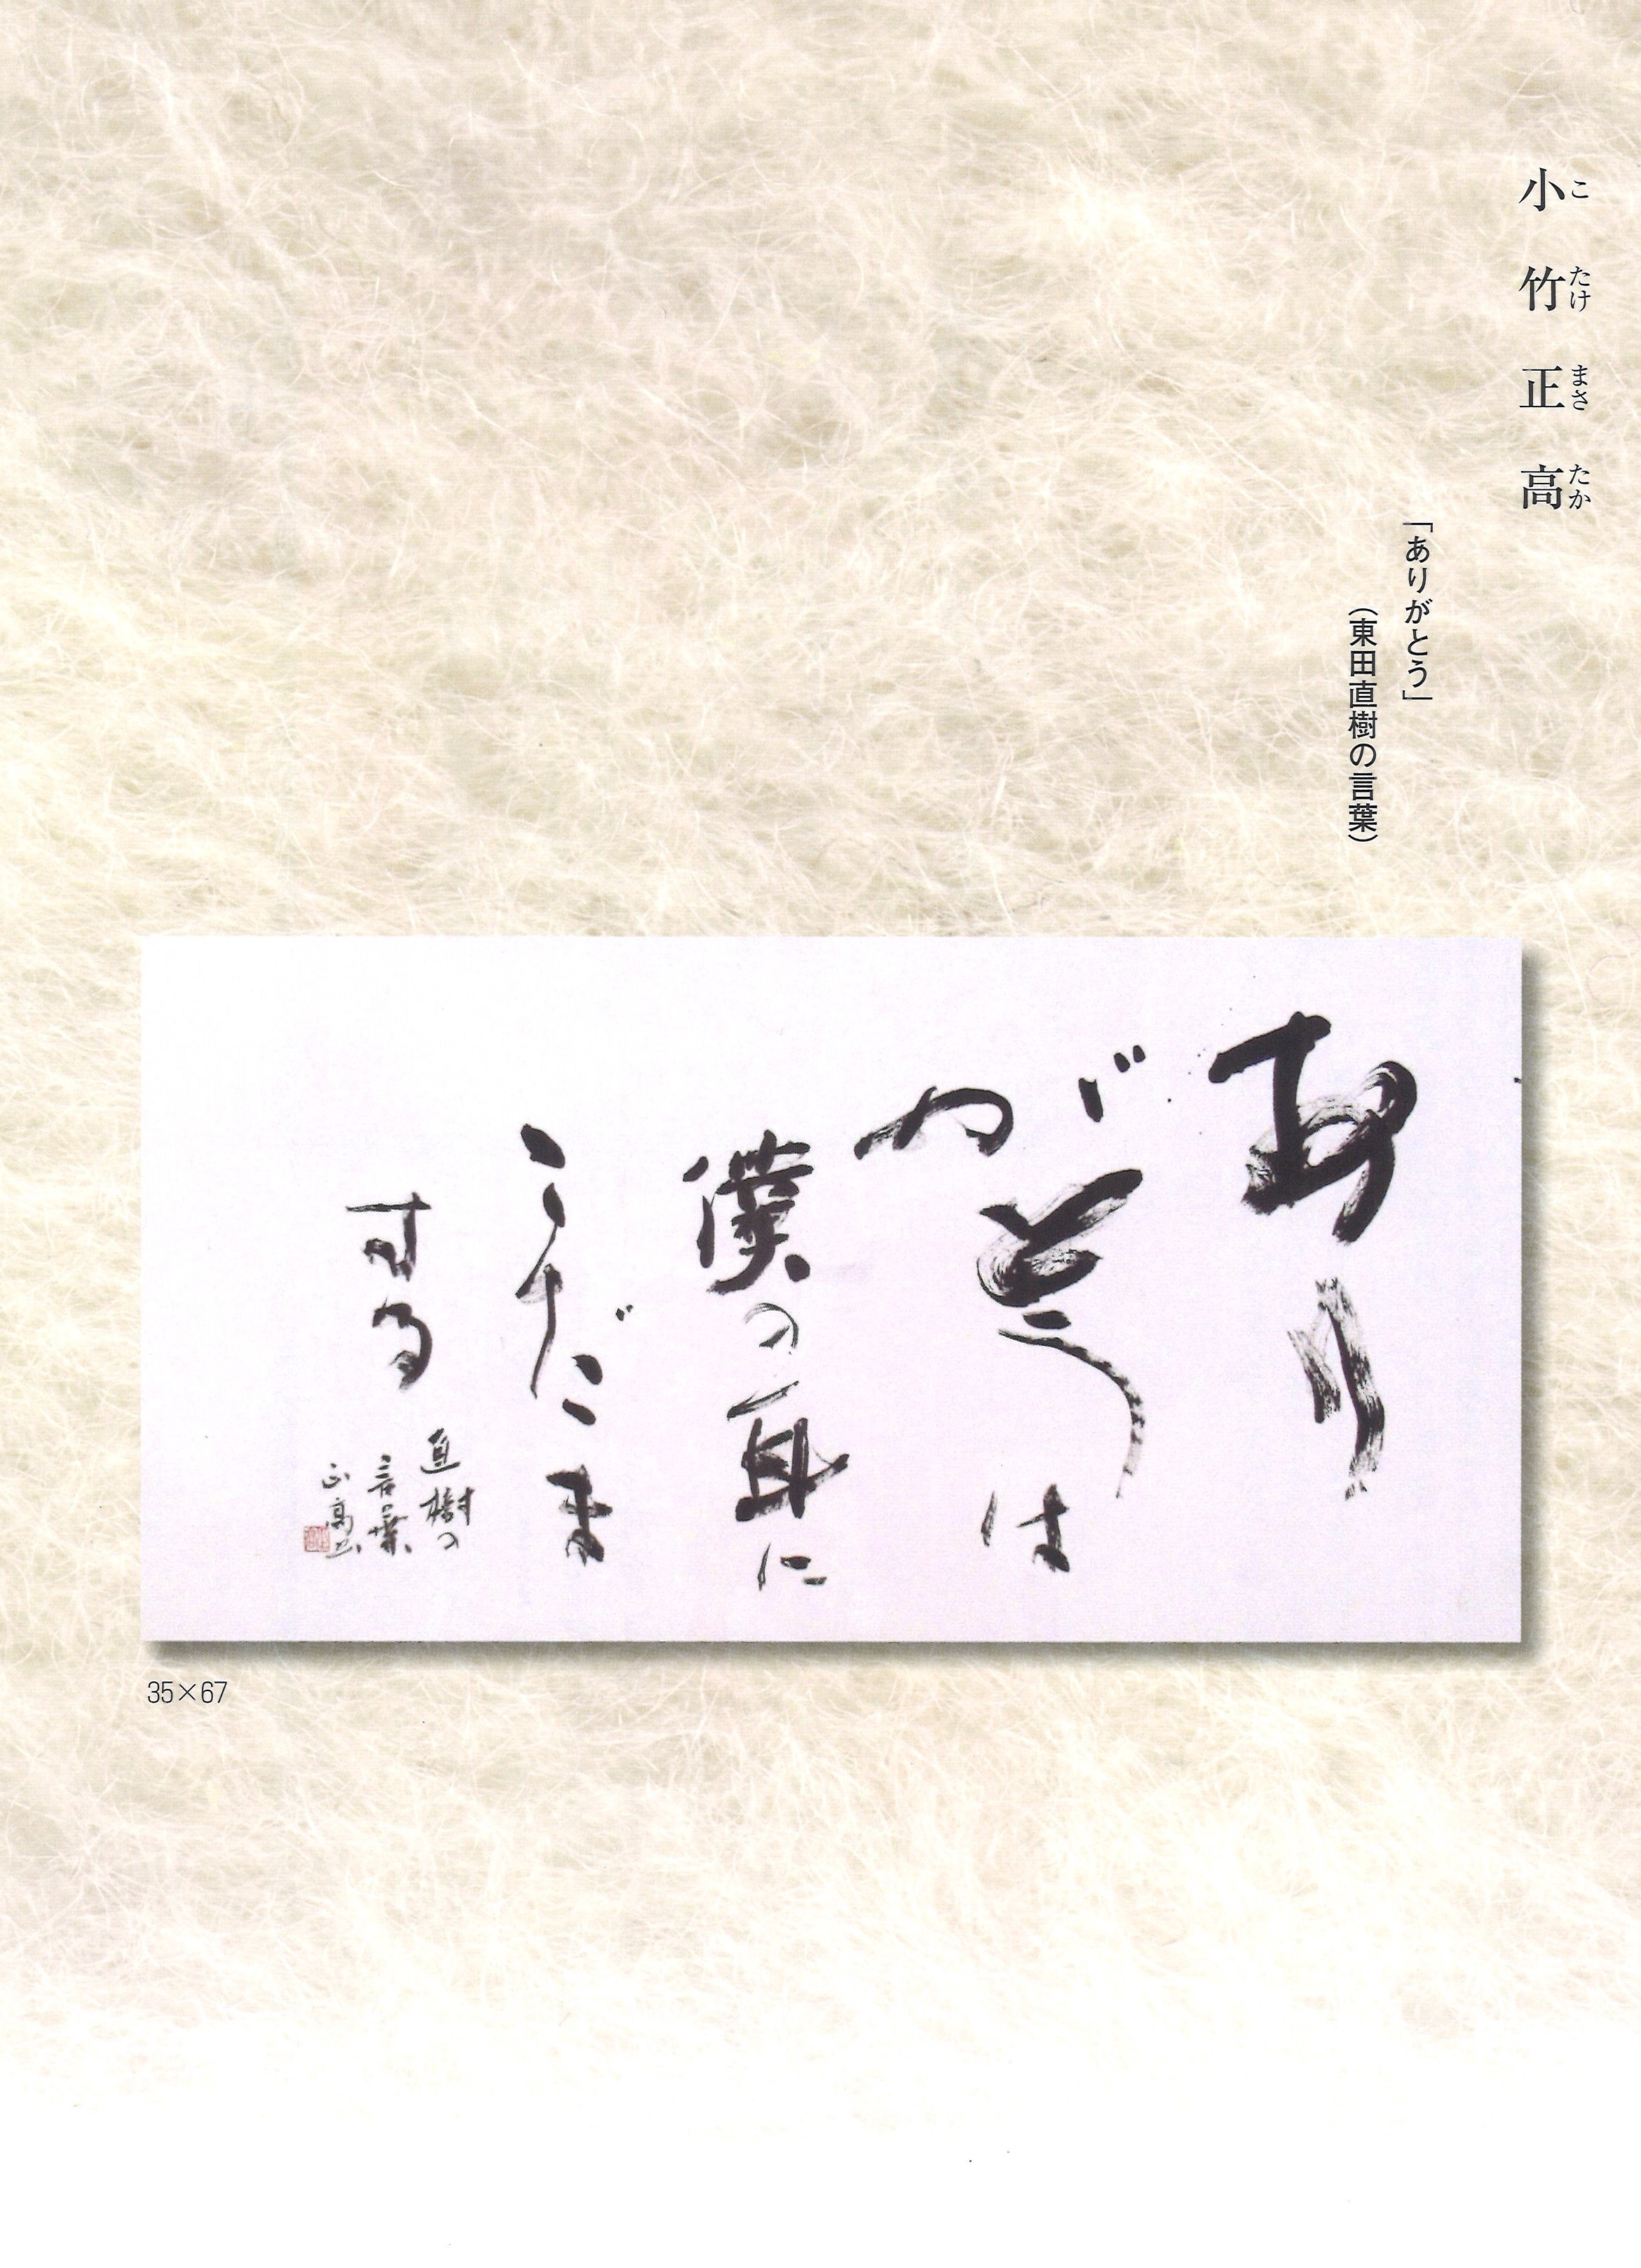 小竹正高
こたけまさたか
「ありがとう」
（東田直樹の言葉）
あり
がとうは
僕の耳に
こだま
する
直樹の
言葉
正高
35×67